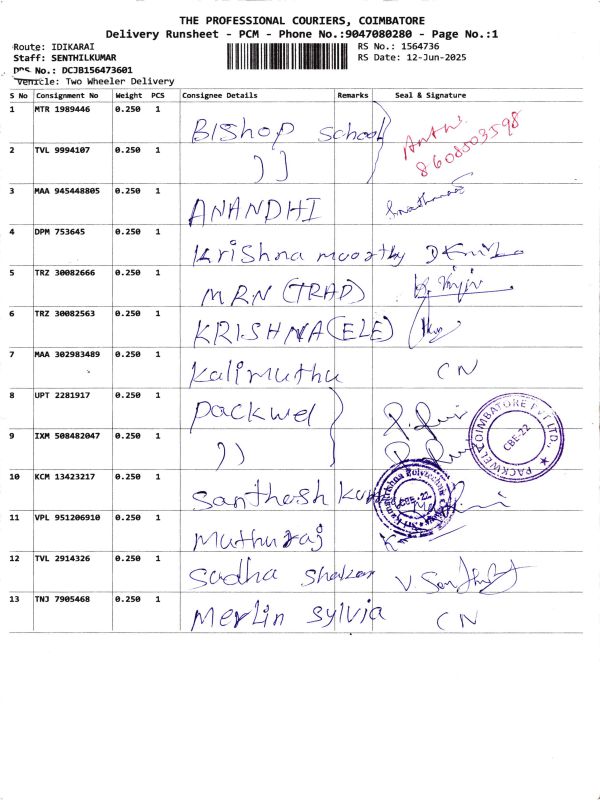 THE PROFESSIONAL COURIERS, COIMBATORE
Delivery Runsheet - PCM - Phone No.:9047080280 - Page No.:1
Route: IDIKARAI RS No.: 1564736
Staff: SENTHILKUMAR RS Date: 12-Jun-2025
DRS No.: DCJB156473601
Vehicle: Two Wheeler Delivery
S No Consignment No Weight PCS Consignee Details Remarks Seal & Signature
1 MTR 1989446 0.250 1 BIShop School Anthi
2 TVL 9994107 0.250 1 )) 8608503598
3 MAA 945448805 0.250 1 ANANDHI
4 DPM 753645 0.250 1 Krishna moorthy
5 TRZ 30082666 0.250 1 MRN (TRAD)
6 TRZ 30082563 0.250 1 KRISHNA (ELE)
7 MAA 302983489 0.250 1 Kalimuthu CN
8 UPT 2281917 0.250 1 Packwel
PACKWEL COIMBATORE PVT LTD., ★ CBE-22
9 IXM 508482047 0.250 1 ))
10 KCM 13423217 0.250 1 Santhosh Kum
Sri Ramakrishna Polytechnic College CBE-22
11 VPL 951206910 0.250 1 Muthuraj
12 TVL 2914326 0.250 1 Sudha Shekar
13 TNJ 7905468 0.250 1 Merlin Sylvia CN